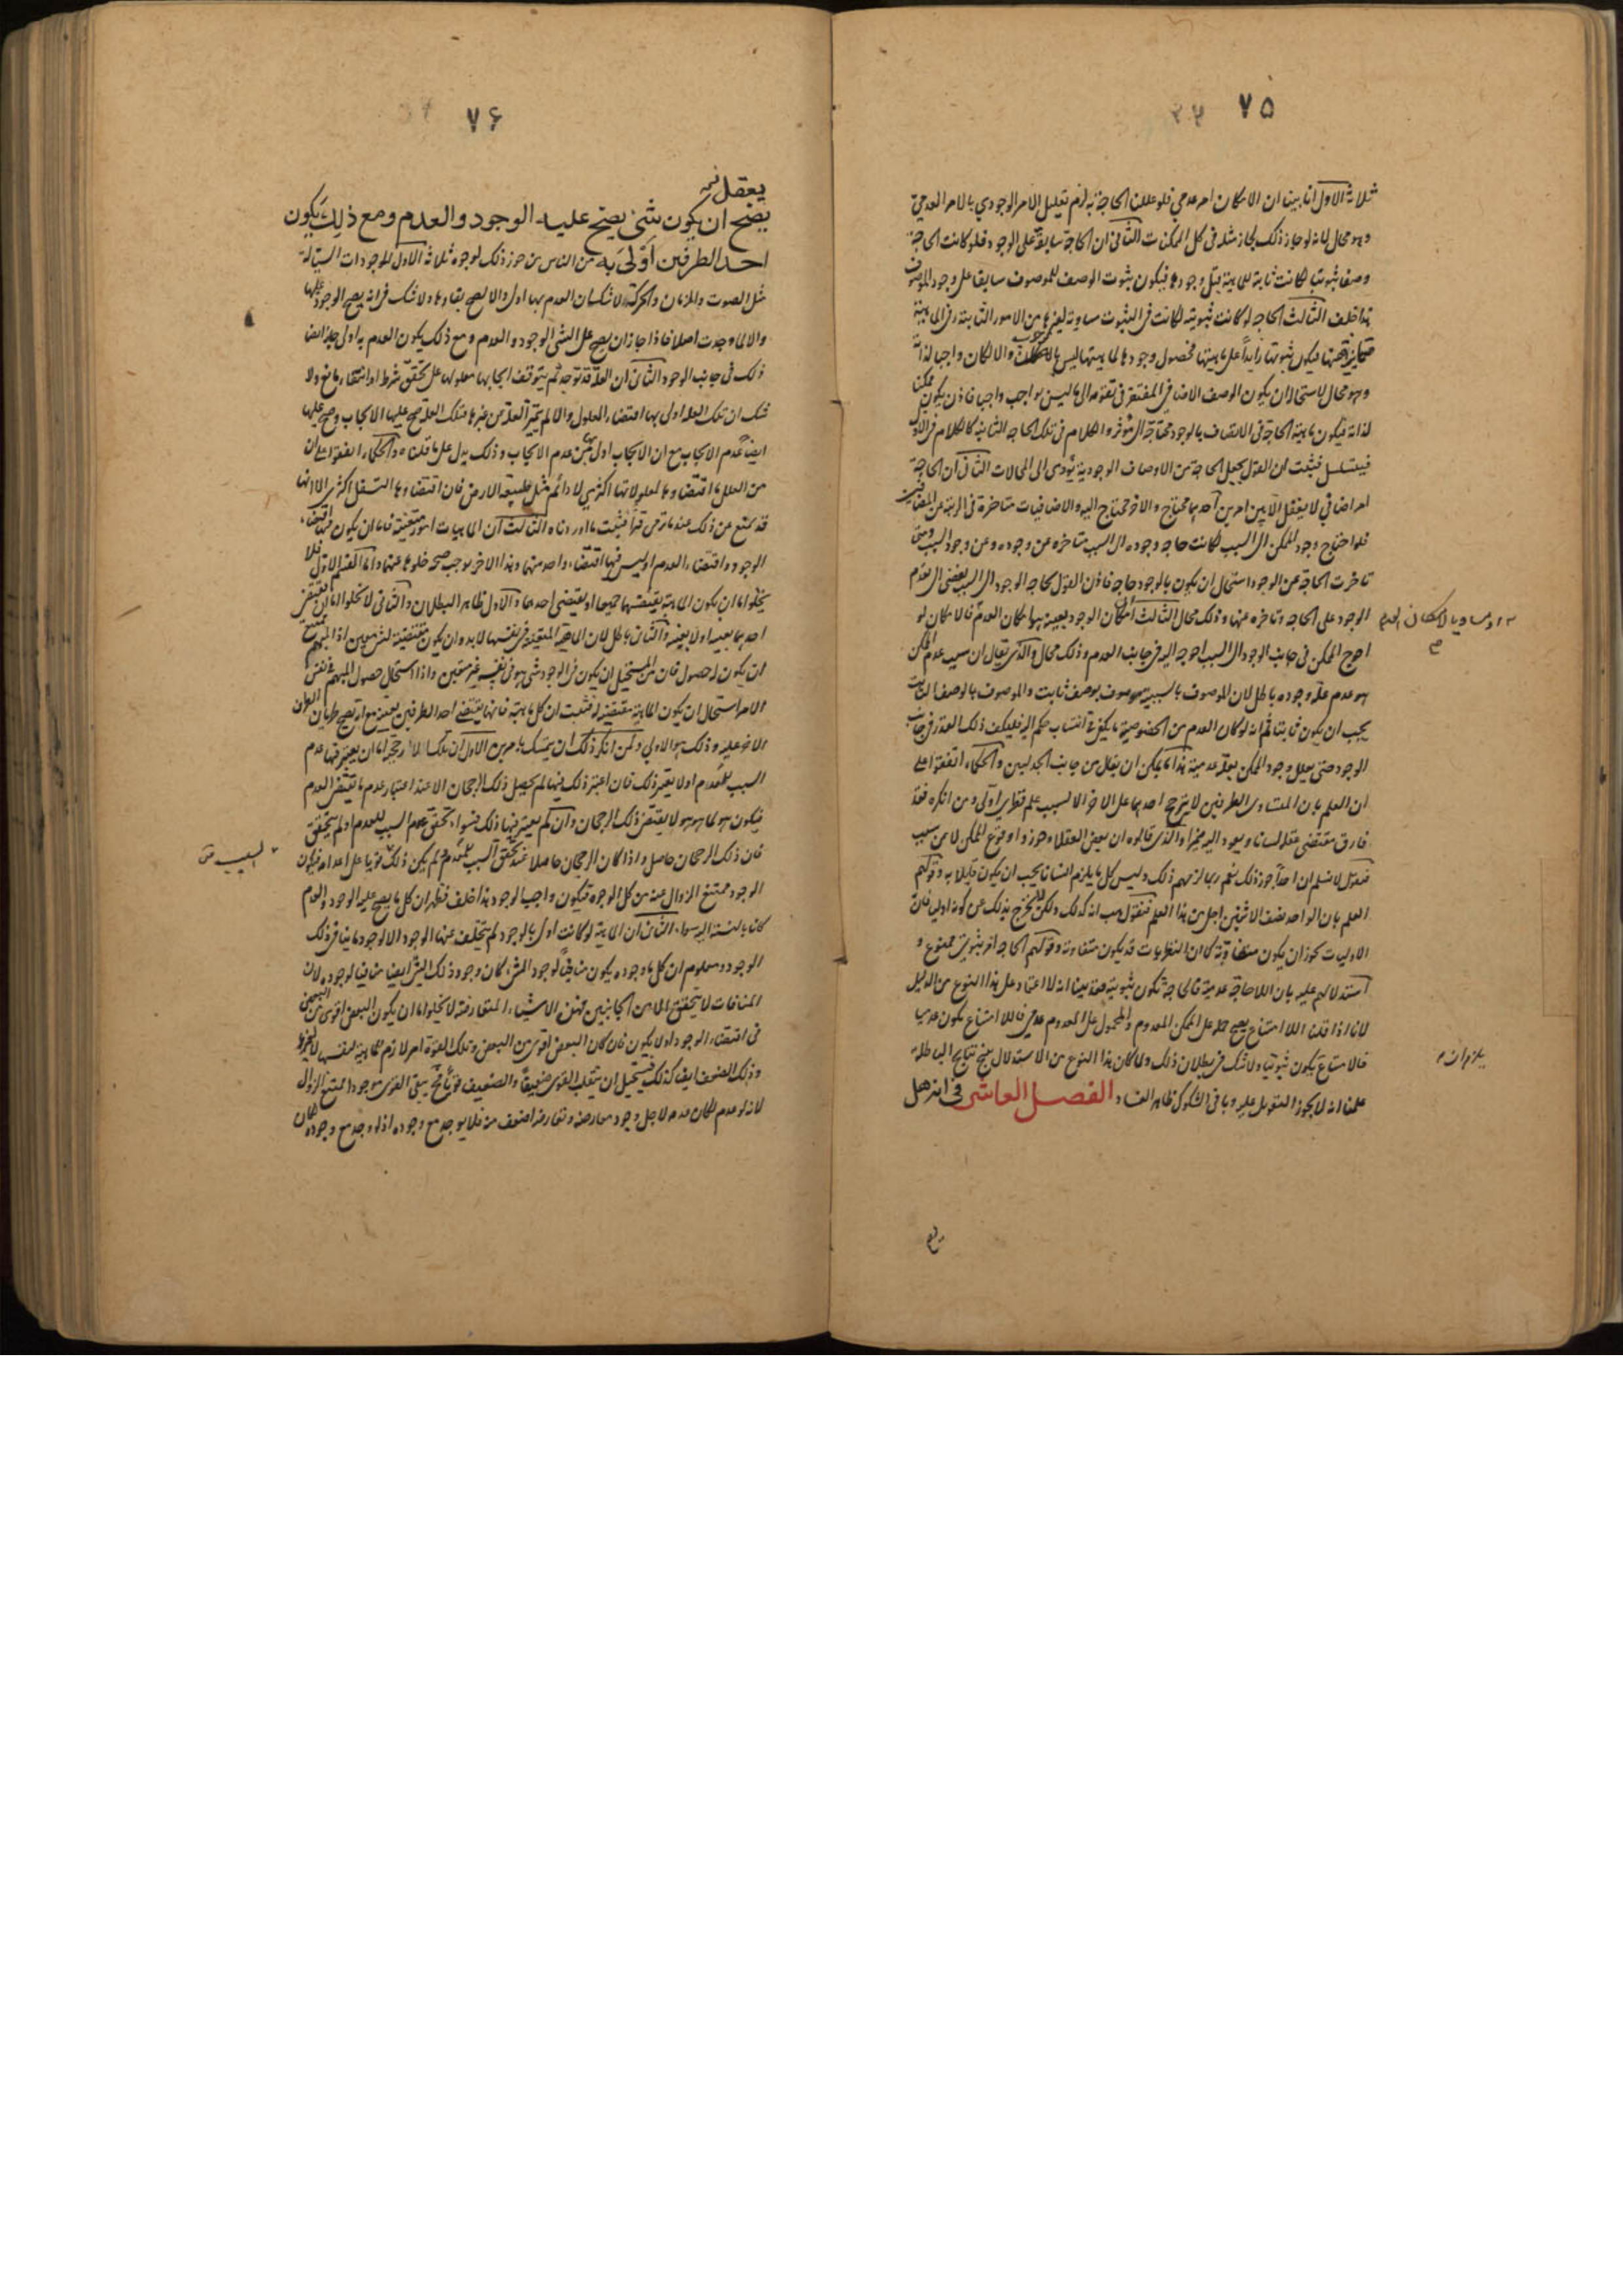 ٧٥
ثلاثة الاول انا بينا ان الامكان امر عدمي فلو عللنا الحاجة به لزم تعليل الامر الوجودي بالامر العدمي
وهو محال لانه لو جاز ذلك لجاز مثله في كل الممكنات الثاني ان الحاجة سابقة على الوجود فلو كانت الحاجة
وصفا ثبوتيا لكانت ثابتة للماهية قبل وجودها فيكون ثبوت الوصف للموصوف سابقا على وجود الموصوف
هذا خلف الثالث الحاجة لو كانت ثبوتية لكانت في الثبوت مساوية لغيرها من الامور الثابتة وفي الماهية
فيكون ثبوتها زايدا على ماهيتها فحصول وجودها لماهيتها ليس بالوجوب والا لكان واجبا لذاته
وهو محال لاستحالة ان يكون الوصف الاضافي المفتقر في تقومه الى ما ليس بواجب واجبا فاذن يكون ممكنا
لذاته فيكون ماهية الحاجة في الاتصاف بالوجود محتاجة الى مؤثر والكلام في تلك الحاجة الثانية كالكلام في الاولى
فيتسلسل فثبت ان القول بجعل الحاجة من الاوصاف الوجودية يؤدي الى المحالات الثاني ان الحاجة
امر اضافي لا يعقل الا بين امرين احدهما محتاج والاخر محتاج اليه والاضافيات متاخرة في الرتبة عن المضافين
فلو احتاج وجود الممكن الى السبب لكانت حاجة وجوده الى السبب متاخرة عن وجوده وعن وجود السبب ومتى
تاخرت الحاجة عن الوجود استحال ان يكون بالوجود حاجة فاذن القول بحاجة الوجود الى السبب يفضي الى تقدم
الوجود على الحاجة وتاخره عنها وذلك محال الثالث امكان الوجود بعينه هو امكان العدم فالامكان لو
احوج الممكن في جانب الوجود الى السبب لاحوجه اليه في جانب العدم وذلك محال والذي يقال ان سبب عدم الممكن
هو عدم علة وجوده باطل لان الموصوف بالسببية موصوف بوصف ثابت والموصوف بالوصف الثابت
يجب ان يكون ثابتا ثم انه لو كان العدم من الخصوصية ما يكفي في انتساب حكم اليه فليكف ذلك القدر في جانب
الوجود حتى يعلل وجود الممكن بعلة عدمية هذا ما يمكن ان يقال من جانب الجدليين والحكماء اتفقوا على
ان العلم بان المتساوي الطرفين لا يترجح احدهما على الاخر الا لسبب علم فطري اولي ومن انكره فقد
فارق مقتضى عقله لسانا ويعود اليه ضميرا والذي قالوه ان بعض العقلاء جوزوا وقوع الممكن لا عن سبب
فنقول لا نسلم ان احدا جوز ذلك نعم ربما لزمهم ذلك وليس كل ما يلزم انسانا يجب ان يكون قايلا به وقولهم
العلم بان الواحد نصف الاثنين اجلى من هذا العلم فنقول هب انه كذلك ولكن لا يخرج بذلك عن كونه اوليا فان
الاوليات يجوز ان يكون متفاوتة كما ان النظريات قد يكون متفاوتة وقولهم الحاجة امر ثبوتي ممنوع و
استدلالهم عليه بان اللاحاجة عدمية فالحاجة تكون ثبوتية فقد بينا انه لا اعتماد على هذا النوع من الدليل
لانا اذا قلنا اللا امتناع يصح حمله على الممكن المعدوم والمحمول على المعدوم عدمي فاللا امتناع يكون عدميا
فالامتناع يكون ثبوتيا ولا شك في بطلان ذلك ولما كان هذا النوع من الاستدلال ينتج نتايج الباطلة
علمنا انه لا يجوز التعويل عليه وباقي الشكوك ظاهر الفساد الفصل العاشر في انه هل
٧۶
يعقل
يصح ان يكون شئ يصح عليه الوجود والعدم ومع ذلك يكون
احد الطرفين اولى به من الناس من جوز ذلك لوجوه ثلاثة الاول الموجودات السيالة
مثل الصوت والزمان والحركة لا شك ان العدم بها اولى والا لصح بقاؤها ولا شك في انه يصح الوجود عليها
والا لما وجدت اصلا فاذا جاز ان يصح على الشئ الوجود والعدم ومع ذلك يكون العدم به اولى جاز ايضا
ذلك في جانب الوجود الثاني ان العلة قد توجد ثم يتوقف ايجابها معلولها على تحقق شرط او انتفاء مانع ولا
شك ان تلك العلة اولى بها اقتضاء المعلول والا لم يتميز العلة عن غيرها فتلك العلة يصح عليها الايجاب وصح عليها
ايضا عدم الايجاب مع ان الايجاب اولى بها من عدم الايجاب وذلك يدل على ما قلناه والحكماء اتفقوا على ان
من العلل ما اقتضاؤها لمعلولاتها اكثري لا دائم مثل طبيعة الارض فان اقتضاءها التسفل اكثري الا انها
قد يمنع عن ذلك عند ما ترمى قسرا فثبت ما اوردناه الثالث ان الماهيات
الوجود واقتضاء العدم او ليس فيها اقتضاء واحد منهما وهذا الاخر يوجب صحة خلوها عنهما واما القسم الاول فلا
يخلو اما ان يكون الماهية يقتضيهما جميعا او يقتضي احدهما والاول ظاهر البطلان والثاني لا يخلو اما ان يقتضي
احدهما بعينه او لا بعينه والثاني باطل لان الماهية المعينة في نفسها لا بد وان يكون مقتضية لشئ معين اذ المبهم يمتنع
ان يكون له حصول فان من المستحيل ان يكون في الوجود شئ هو في نفسه غير متعين واذا استحال حصول المبهم في نفس
الامر استحال ان يكون الماهية مقتضية له فثبت ان كل ماهية فانها يقتضي احد الطرفين بعينه مع انه يصح طريان الطرف
الاخر عليه وذلك هو الاولي ولمن انكر ذلك ان يتمسك بامرين الاول ان تلك الارجحية اما ان يعتبر فيها عدم
السبب للعدم او لا يعتبر ذلك فان اعتبر ذلك فيها لم يحصل ذلك الرجحان الا عند اعتبار عدم ما يقتضي العدم
فيكون هو لما هو هو لا يقتضي ذلك الرجحان وان لم يعتبر فيها ذلك فسواء تحقق السبب للعدم او لم يتحقق
فان ذلك الرجحان حاصل واذا كان الرجحان حاصلا عند تحقق السبب للعدم لم يكن ذلك قويا على اعدامه فيكون
الوجود ممتنع الزوال عنه من كل الوجوه فيكون واجب الوجود هذا خلف فظهر ان كل ما يصح عليه الوجود والعدم
كانا بالنسبة اليه سواء الثاني ان الماهية لو كانت اولى بالوجود لم يتخلف عنها الوجود الا لوجود ما ينافي ذلك
الوجود ومعلوم ان كل ما وجوده يكون منافيا لوجود الشئ كان وجود ذلك الشئ ايضا منافيا لوجوده لان
المنافات لا يتحقق الا من الجانبين فهذه الاشياء المتعارضة لا يخلو اما ان يكون البعض اقوى من البعض
في اقتضاء الوجود او لا يكون فان كان البعض اقوى من البعض وتلك القوة امر لازم لماهية لنفسها لا لغيرها
وذلك الضعف ايضا كذلك فيستحيل ان ينقلب القوي ضعيفا والضعيف قويا فح يبقى القوي موجودا ممتنع الزوال
لانه لو عدم لكان عدمه لاجل وجود معارضه ومعارضه اضعف منه فلا يوجد مع وجوده اذ لو وجد مع وجوده لكان